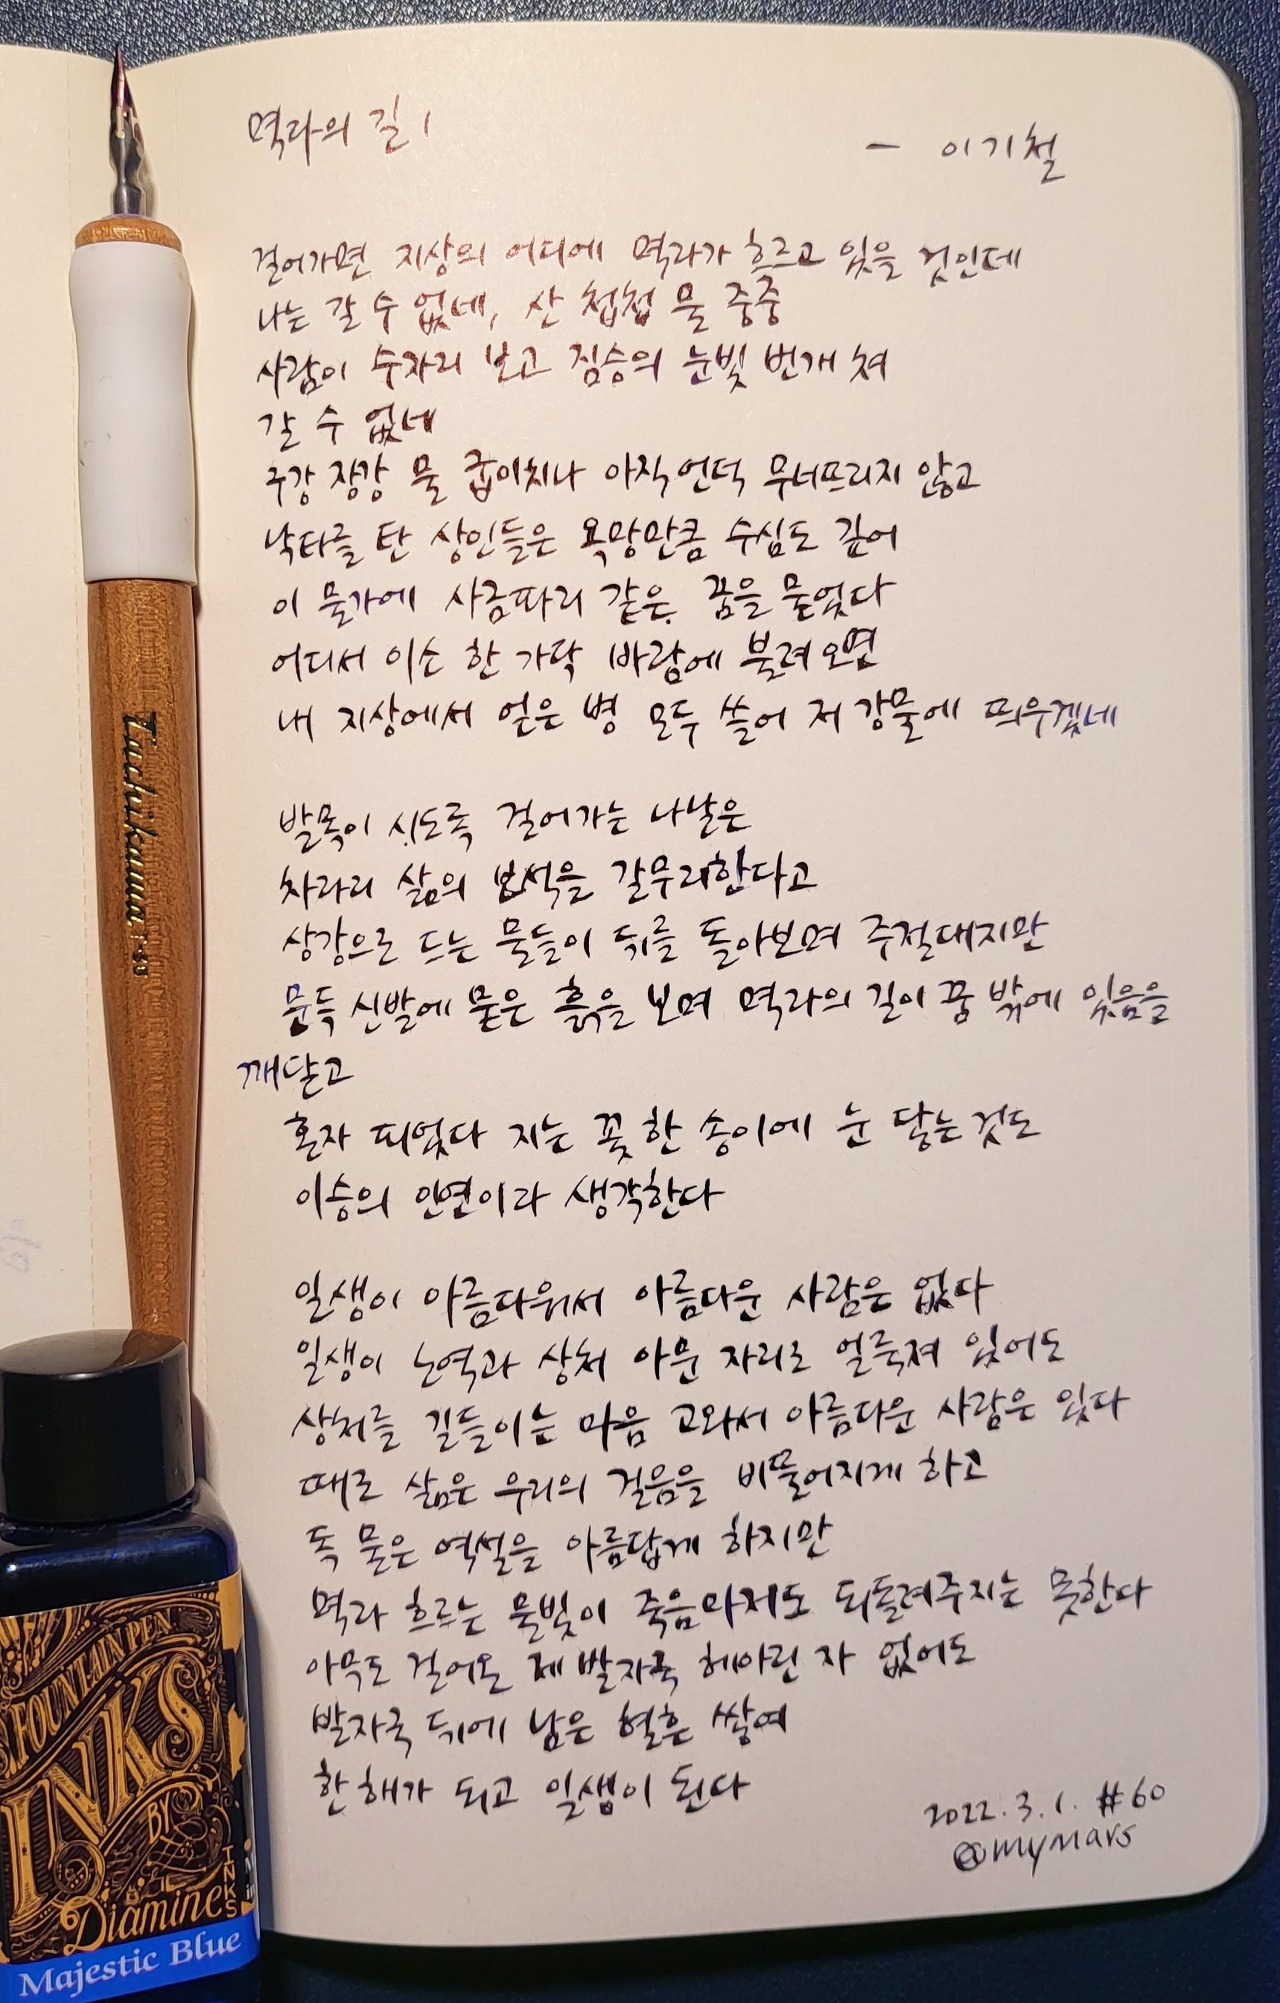 멱라의 길 1
- 이기철
걸어가면 지상의 어디에 멱라가 흐르고 있을 것인데
나는 갈 수 없네, 산 첩첩 물 중중
사람이 수자리 보고 짐승의 눈빛 번개 쳐
갈 수 없네
구강 장강 물 굽이치나 아직 언덕 무너뜨리지 않고
낙타를 탄 상인들은 욕망만큼 수심도 깊어
이 물가에 사금파리 같은 꿈을 묻었다
어디서 이소 한 가닥 바람에 불려오면
내 지상에서 얻은 병 모두 쓸어 저 강물에 띄우겠네
발목이 시도록 걸어가는 나날은
차라리 삶의 보석을 갈무리한다고
상강으로 드는 물들이 뒤를 돌아보며 주절대지만
문득 신발에 묻은 흙을 보며 멱라의 길이 꿈 밖에 있음을
깨닫고
혼자 피었다 지는 꽃 한 송이에 눈 닿는 것도
이승의 인연이라 생각한다
일생이 아름다워서 아름다운 사람은 없다
일생이 노역과 상처 아문 자리로 얼룩져 있어도
상처를 길들이는 마음 고와서 아름다운 사람은 있다
때로 삶은 우리의 걸음을 비뚤어지게 하고
독 묻은 역설을 아름답게 하지만
멱라 흐르는 물빛이 죽음마저도 되돌려주지는 못한다
아무도 걸어온 제 발자국 헤아린 자 없어도
발자국 뒤에 남은 혈흔 쌓여
한 해가 되고 일생이 된다
2022.3.1. #60
@mymars
Tachikawa T-40
FOUNTAIN PEN
INKS
BY
Diamine
INKS
Majestic Blue